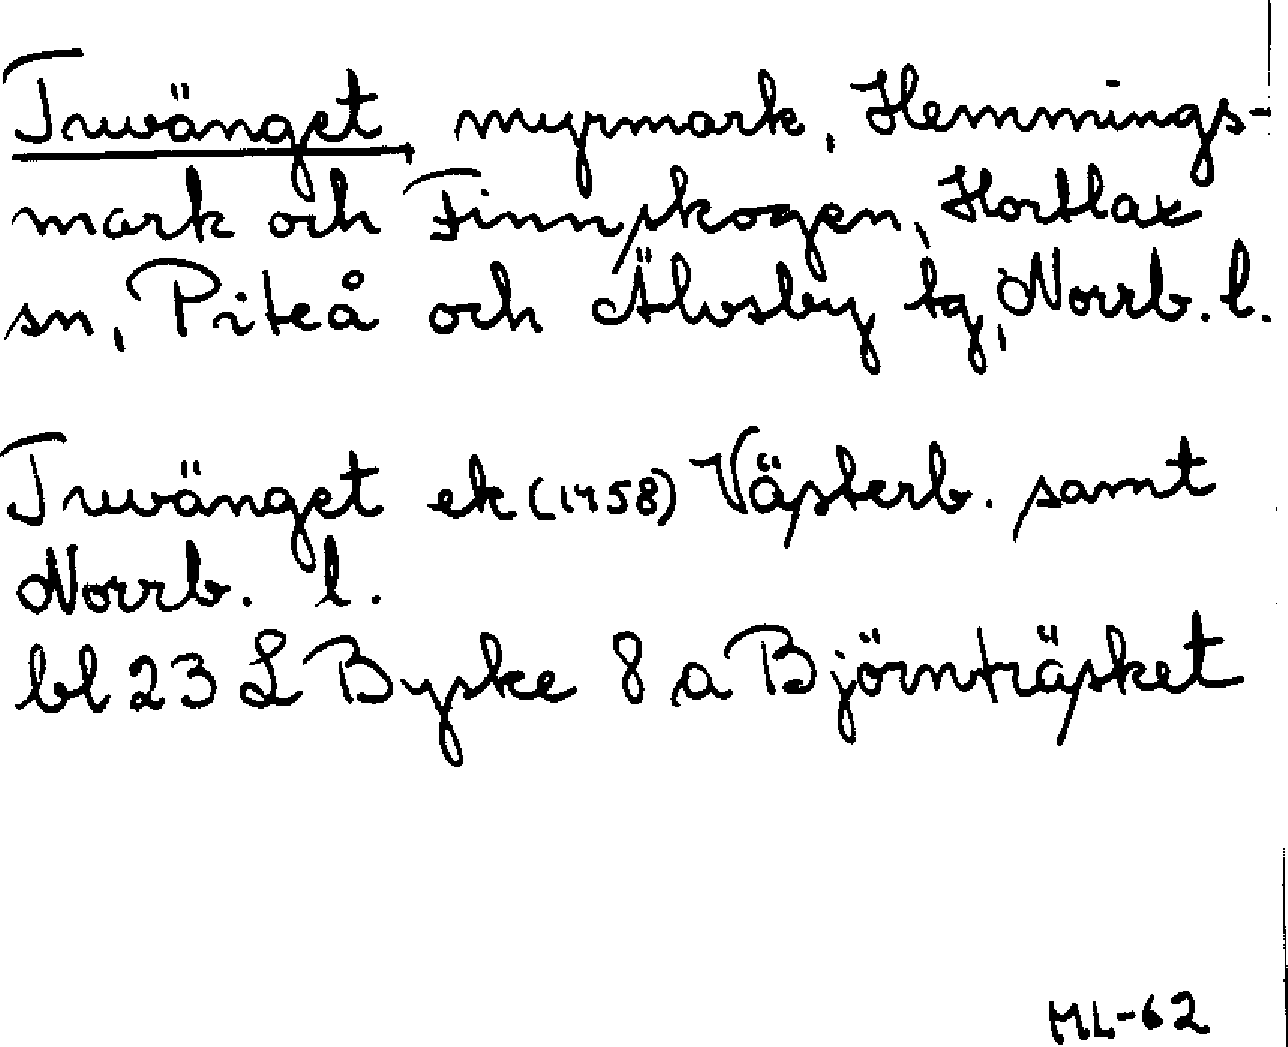 Tuvänget, myrmark, Hemmings-
mark och Finnskogen, Hortlax
sn, Piteå och Älvsby tg, Norrb. l.
Tuvänget ek (1958) Västerb. samt
Norrb. l.
bl 23 L Byske 8 a Björnträsket
ML-62